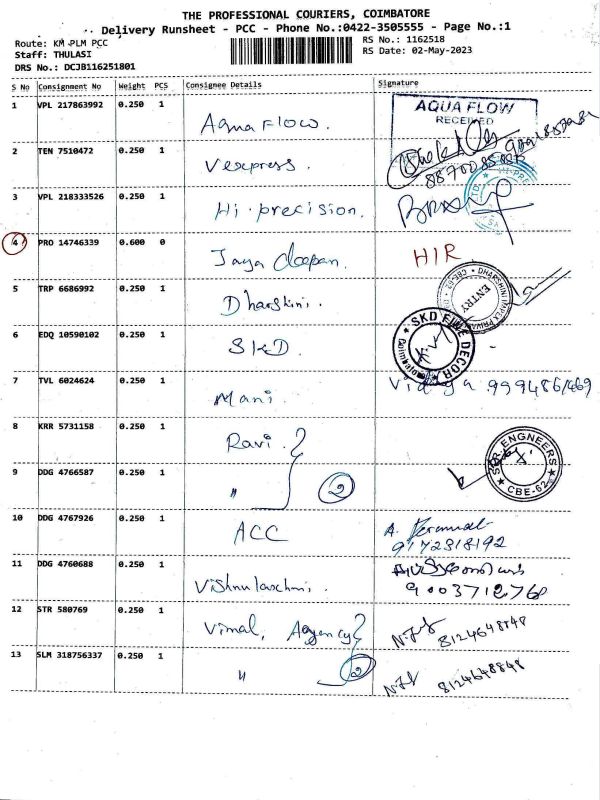 THE PROFESSIONAL COURIERS, COIMBATORE
Delivery Runsheet - PCC - Phone No.:0422-3505555 - Page No.:1
Route: KM PLM PCC
RS No.: 1162518
Staff: THULASI
RS Date: 02-May-2023
DRS No.: DCJB116251801
S No Consignment No Weight PCS Consignee Details Signature
1 VPL 217863992 0.250 1 Aqua Flow. AQUA FLOW
RECEIVED
2 TEN 7510472 0.250 1 Vexpress.
3 VPL 218333526 0.250 1 Hi-precision.
4 PRO 14746339 0.600 0 Jaya deepan. HIR
5 TRP 6686992 0.250 1 Dharshini. ENTRY
6 EDQ 10590102 0.250 1 SKD. SKD FINE DECOR Coimbatore
7 TVL 6024624 0.250 1 Mani.
8 KRR 5731158 0.250 1 Ravi.
9 DDG 4766587 0.250 1 " 2 ENGNEERS CBE-62
10 DDG 4767926 0.250 1 ACC A. Perumal
9172818192
11 DDG 4760688 0.250 1 Vishnulaxhmi.
9003712768
12 STR 580769 0.250 1 Vimal, Agency
13 SLM 318756337 0.250 1 " 2 8124648848